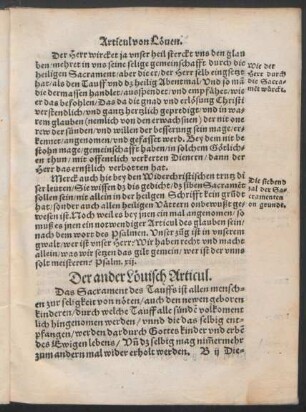 Articul von Löuen.
Der Herr wircket ja vnser heil sterckt vns den glau
ben mehret in vns seine selige gemeinschafft durch die
heiligen Sacrament aber die er der Herr selb eingesetzt
hat als den Tauff vnd dz heilig Abentmal Vnd so mā
die dermassen handlet ausspendet vnd empfähet wie
er das befohlen Das da die gnad vnd erlösung Christi
verstendlich vnd gantz hertzlich gepredigt vnd in wa
rem glauben (nemlich von den erwachsnen) der rew
der sünden vnd willen der besserung sein mage er
kennet angenomen vnd gefasset werd. Bey dem nie
john mage gemeinschafft haben in solchem Götlichē
en thun mit offentlich verkerten Dienern dann der
Herr das ernstlich verbotten hat.
Merck auch hie bey des Widerchristischen trutz di
ser leuten Sie wissen dz dis gedicht dz siben Sacramēt
sollen sein mit allein in der heiligen Schrifft kein grūd
hat sonder auch allen heiligen Vättern onbewusst ge
wesen ist Noch weil es bey jnen ein mal angenomen so
muss es jnen ein notwendiger Articul des glauben sein
nach dem wort des Psalmen. Vnser züg ist in vnserem
gwalt wer ist vnser Herr Wir haben recht vnd macht
alles was wir setzen dz gilt wer ist der vns vnn
solt meisteren? Psalm. xij.
Wie der
Herr durch
die Sacra-
mēt würckt.
Die siebend
zal der Sac-
ramenten
on grunde.
Der ander Löuisch Articul.
Das Sacrament des Tauffs ist allen mensch-
en zur seligkeit von nöten auch den newen geboren
kinderen durch welche Tauff alle sünde volkoment
lich hingenomen werden vnnd die das selbig ent-
pfangen werden dardurch Gottes kinder vnd erbē
des Ewigen lebens Vn̄ dz selbig mag nim̄ermehr
zum andern mal wider erholt werden.
B ij Die-